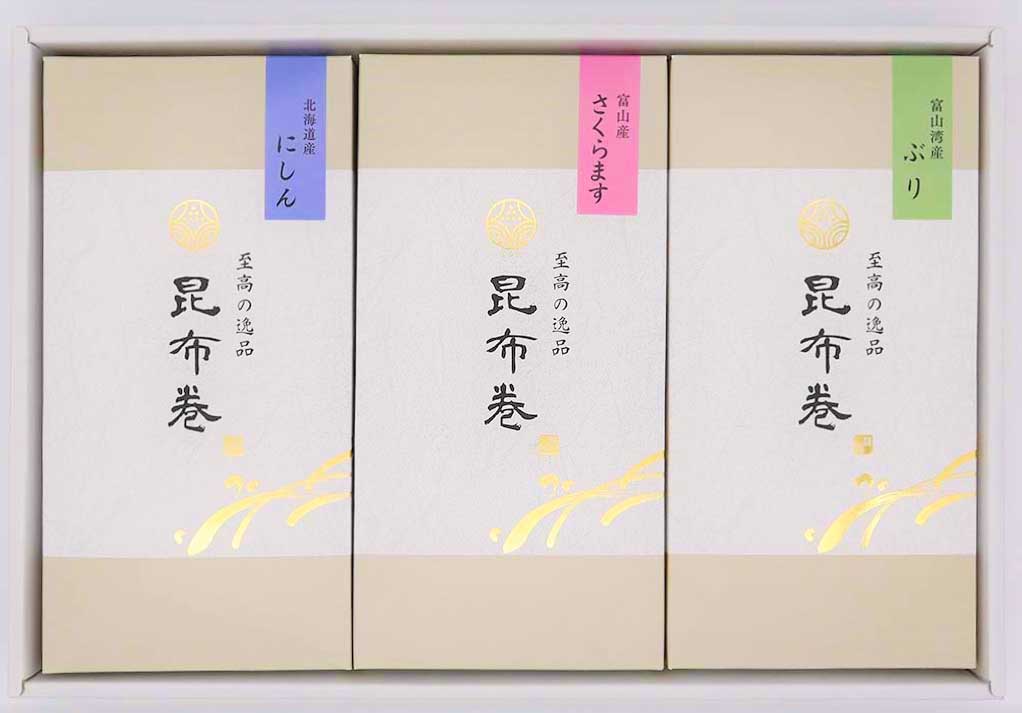 北海道産
にしん
至高の逸品
昆布巻
富山産
さくらます
至高の逸品
昆布巻
富山湾産
ぶり
至高の逸品
昆布巻